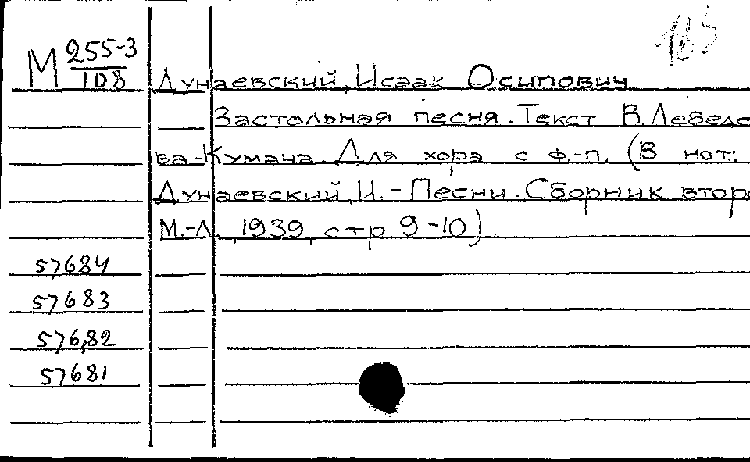 М 255-3/108
Дунаевский, Исаак Осипович
Застольная песня. Текст В. Лебеде
ва-Кумача. Для хора с ф.-п. (В нот:
Дунаевский, И. - Песни. Сборник втор
М.-Л., 1939, стр 9-10)
57684
57683
57682
57681